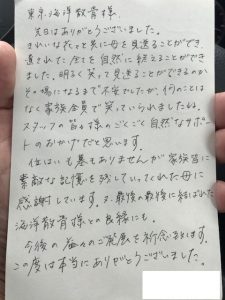 東京海洋散骨様
先日はありがとうございました。
きれいな花々と共に母を見送ることができ、
遺された全てを自然に還えることができ
ました。明るく笑って見送ることができるのか
その場になるまで不安でしたが、何のことは
なく家族全員で笑っていられましたね。
スタッフの皆々様のごくごく自然なサポート
のおかげだと思います。
位はいも墓もありませんが家族皆に
素敵な記憶を残していってくれた母に
感謝しています。又、最後の最後に結ばれた
海洋散骨様との良縁にも。
今後の益々のご発展を祈念致します。
この度は本当にありがとうございました。